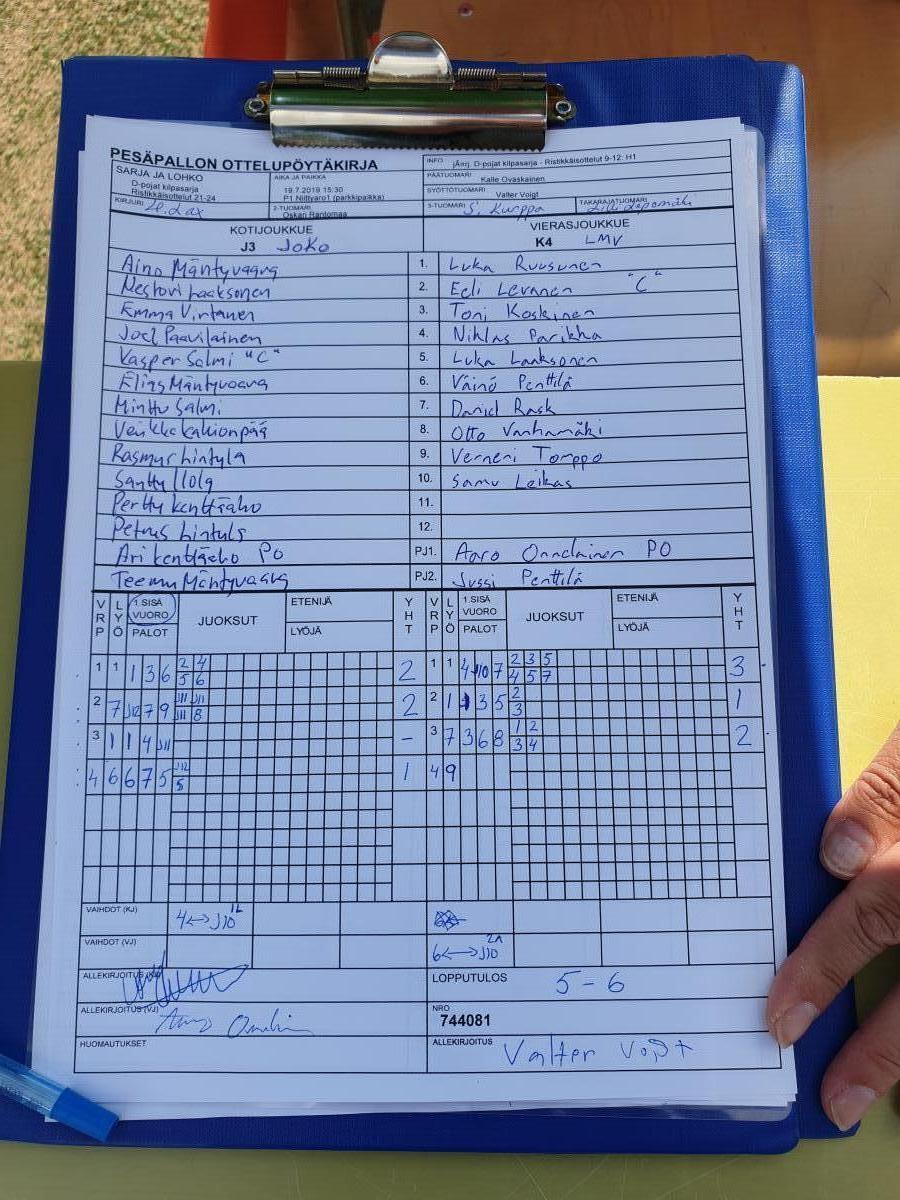 PESÄPALLON OTTELUPÖYTÄKIRJA
INFO jÄrj. D-pojat kilpasarja - Ristikkäisottelut 9-12: H1
SARJA JA LOHKO
D-pojat kilpasarja
Ristikkäisottelut 21-24
AIKA JA PAIKKA
19.7.2019 15:30
P1 Niittyaro1 (parkkipaikka)
PÄÄTUOMARI Kalle Ovaskainen
SYÖTTÖTUOMARI Valter Voigt
KIRJURI
2-TUOMARI Oskari Rantomaa
3-TUOMARI S. Kurppa
TAKARAJATUOMARI
KOTIJOUKKUE
J3 JoKo
VIERASJOUKKUE
K4 LMV
Aino Mäntyvaara 1. Luka Ruusunen
Nestori Laaksonen 2. Eeli Levanen "C"
Emma Virtanen 3. Toni Koskinen
Joel Paavilainen 4. Niklas Parikka
Kasper Salmi "C" 5. Luka Laaksonen
Elias Mäntyvaara 6. Väinö Penttilä
Minttu Salmi 7. Daniel Rask
Veikka Kallionpää 8. Otto Vanhamäki
Rasmus Lintula 9. Verneri Torppo
Santtu Ilola 10. Samu Leikas
Perttu Kenttäaho 11.
Petrus Lintula 12.
Ari Kenttäaho PO PJ1. Aaro Onnelainen PO
Teemu Mäntyvaara PJ2. Jussi Penttilä
VRP LYÖ 1.SISÄ VUORO PALOT JUOKSUT ETENIJÄ LYÖJÄ YHT VRP LYÖ 1.SISÄ VUORO PALOT JUOKSUT ETENIJÄ LYÖJÄ YHT
2 4 2 3 5
1 1 1 3 6 5 6 2 1 1 4 J10 7 4 5 7 3
J11 J11 2
2 7 J12 7 9 J11 8 2 2 1 1 3 5 3 1
1 2
3 1 1 4 J11 - 3 7 3 6 8 3 4 2
J12
4 6 6 7 5 5 1 4 9
VAIHDOT (KJ) 4↔J10 1L
VAIHDOT (VJ) 6↔J10 2A
ALLEKIRJOITUS (KJ)
LOPPUTULOS 5-6
ALLEKIRJOITUS (VJ)
NRO
744081
HUOMAUTUKSET
ALLEKIRJOITUS Valter Voigt